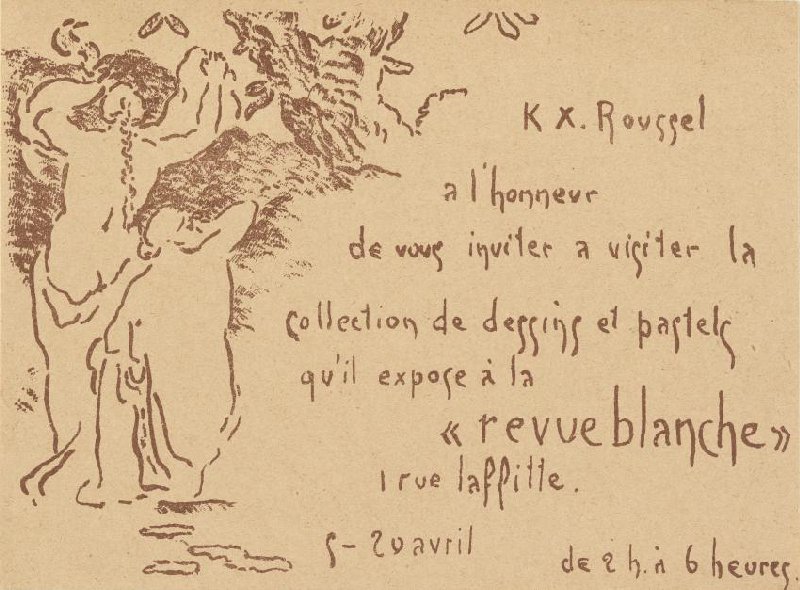 K X. Roussel
a l'honneur
de vous inviter a visiter la
collection de dessins et pastels
qu'il expose à la
« revue blanche »
1 rue laffitte.
5 - 20 avril
de 2 h. à 6 heures.